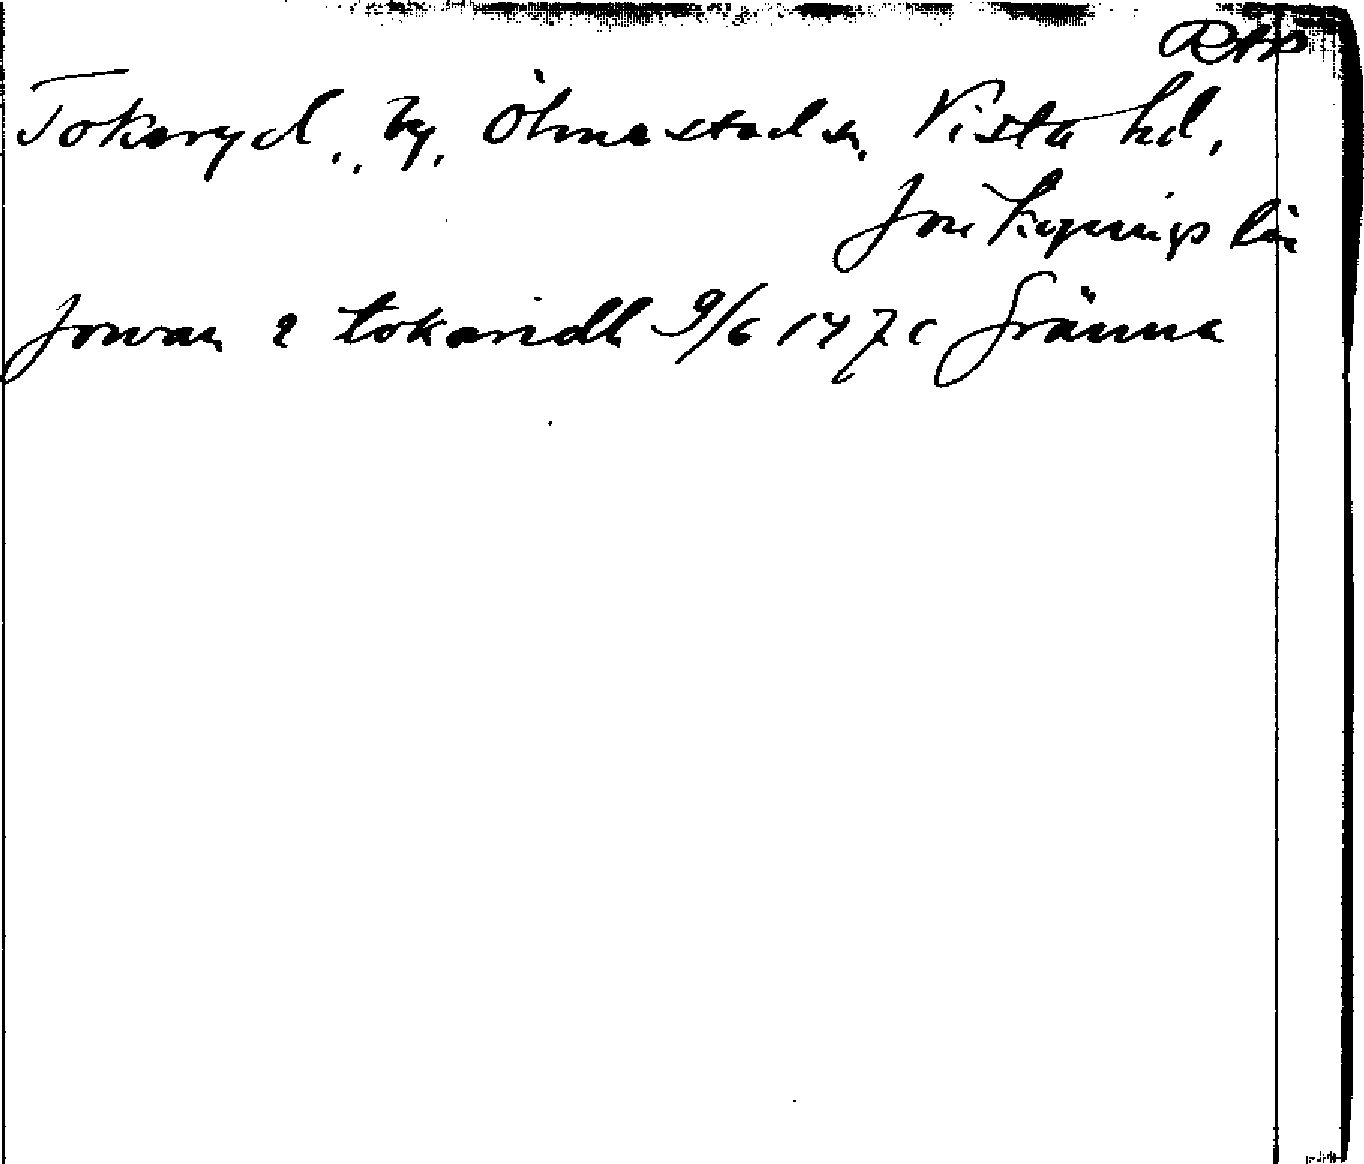 Tokaryd, by, Ölmestads sn, Vista hd,
Jönköpings län
Jowan i tokaridh 9/6 1471 Gränna